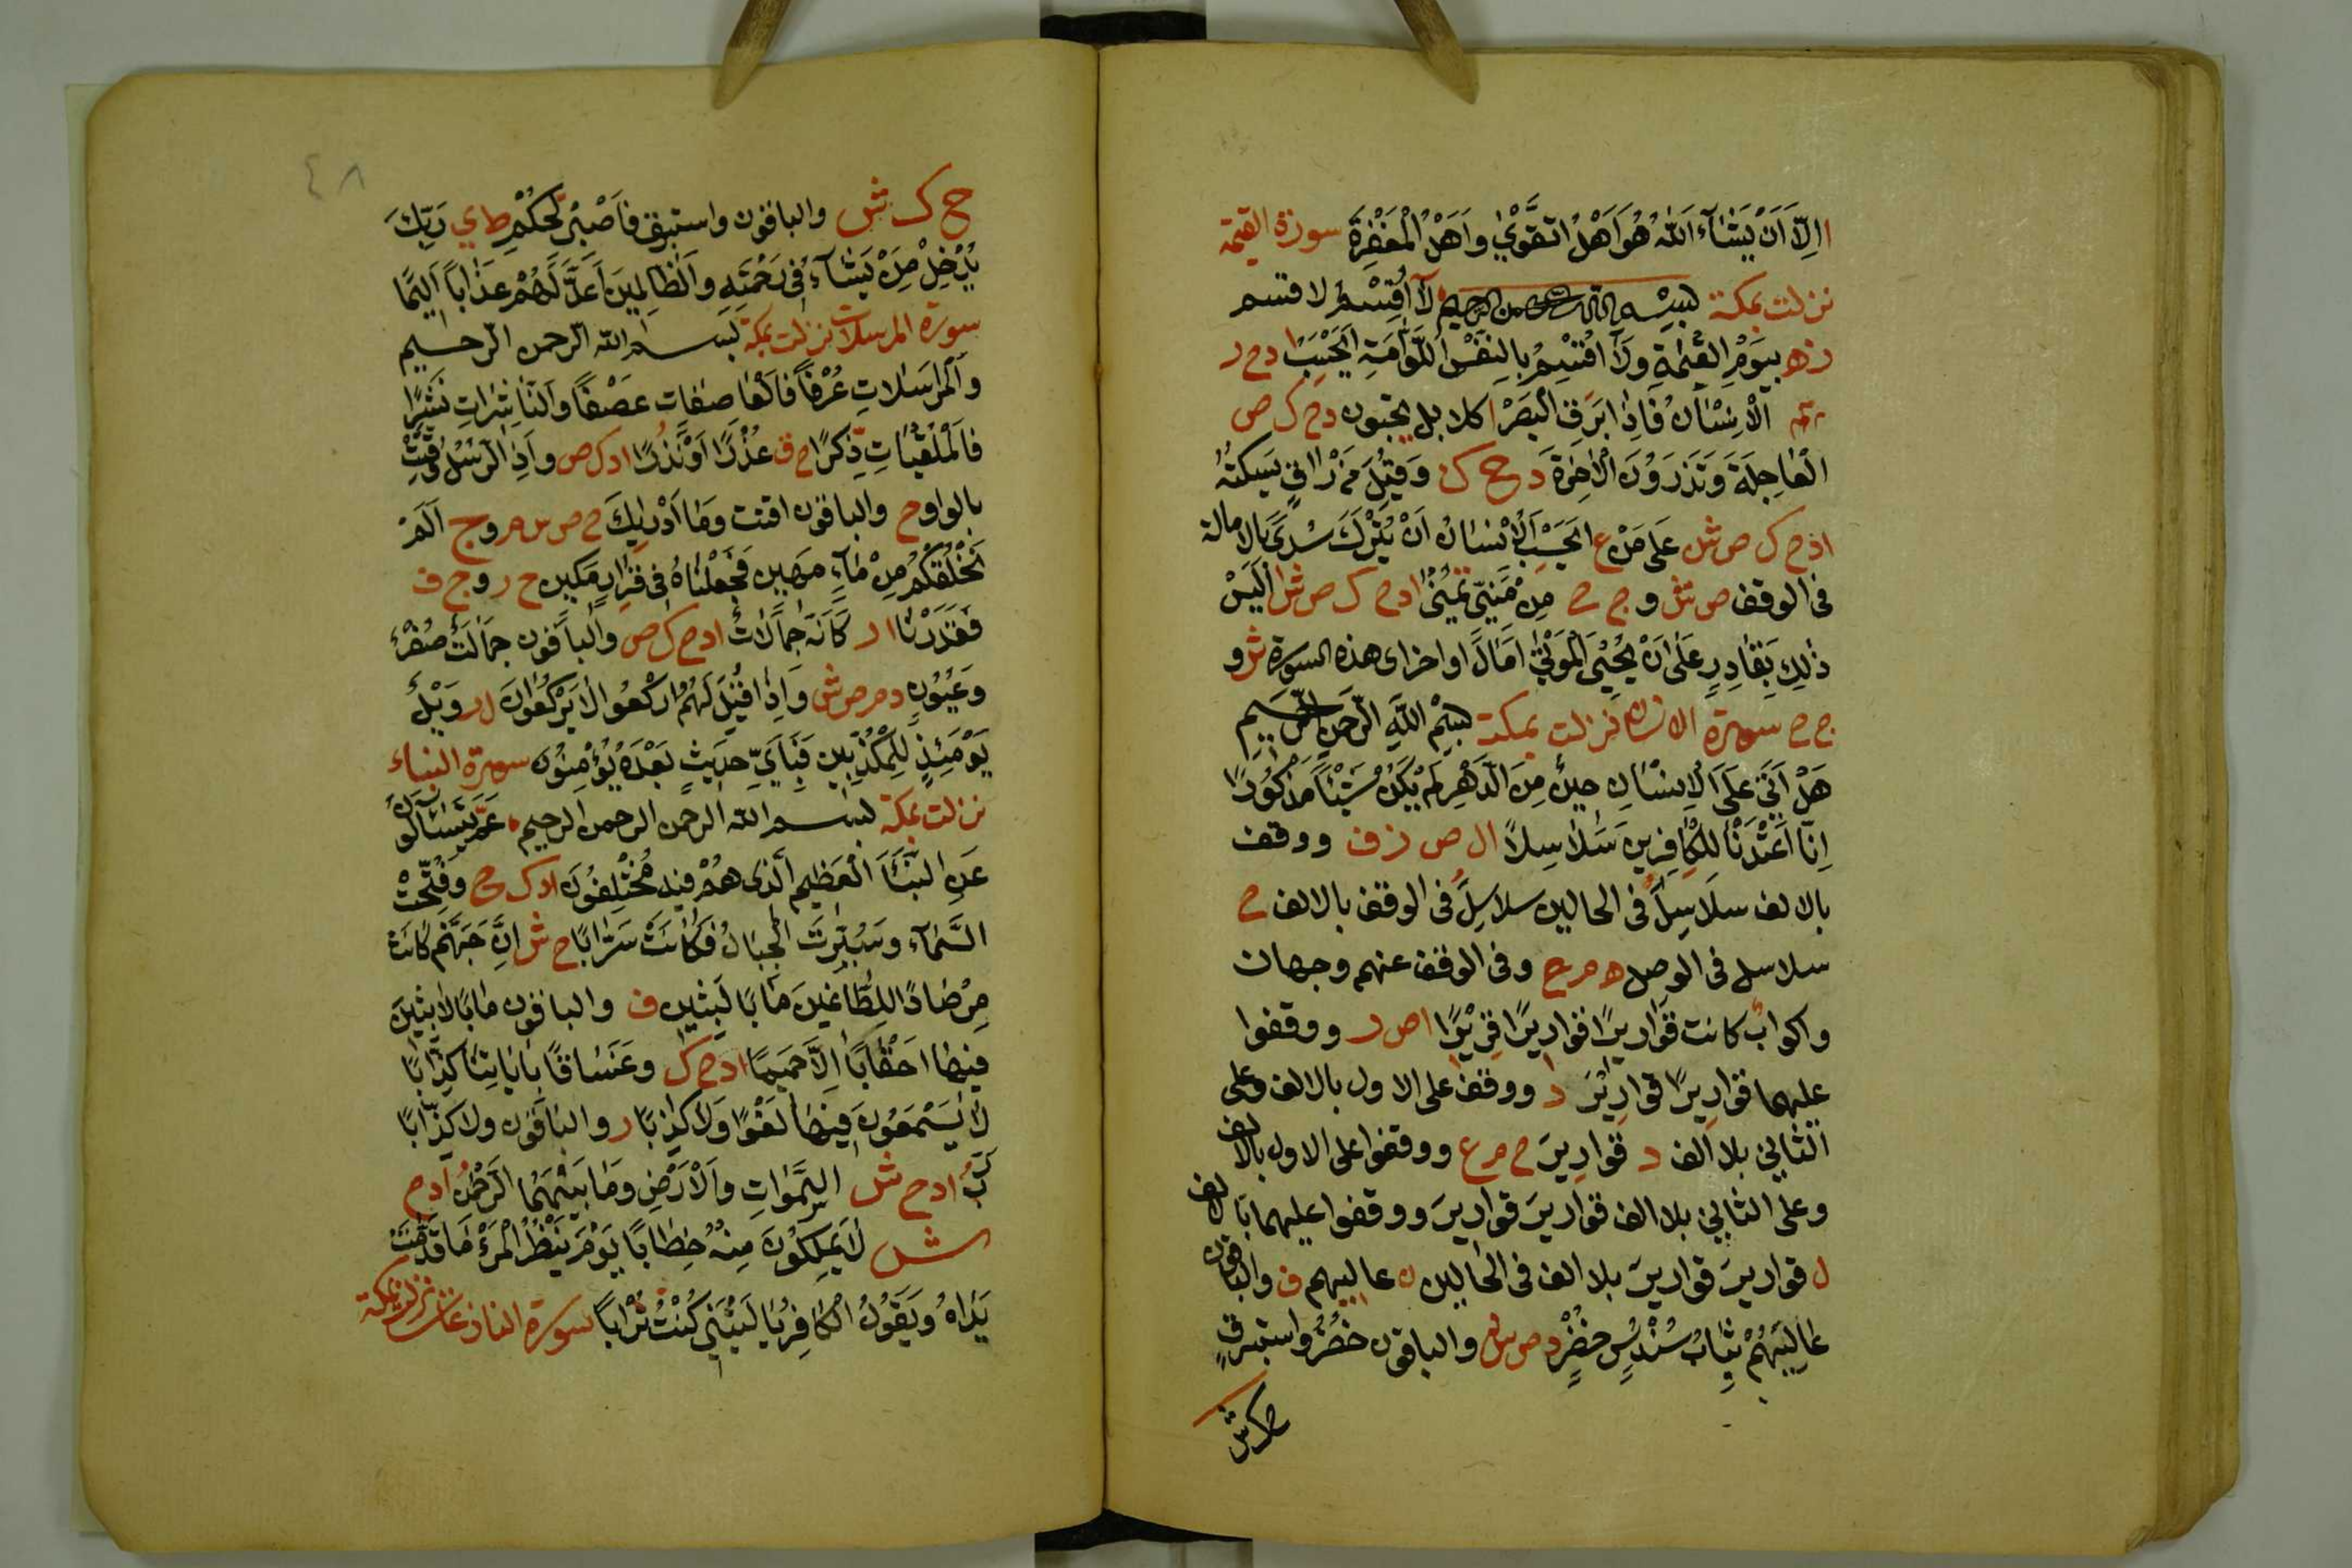 ا اِلَّا اَنْ يَشَآءَ اللّٰهُ هُوَ اَهْلُ التَّقْوٰى وَاَهْلُ الْمَغْفِرَةِ سورة القيمة
نزلت بمكة بسم الله الرحمن الرحيم لَآ اُقْسِمُ لاقسم
زه بِيَوْمِ الْقِيٰمَةِ وَلَآ اُقْسِمُ بِالنَّفْسِ اللَّوَّامَةِ اَيَحْسَبُ ا د ح ر
الْاِنْسَانُ فَاِذَا بَرَقَ الْبَصَرُ ا كلا بل يحبون د ح ك ص
الْعَاجِلَةَ وَتَذَرُوْنَ الْاٰخِرَةَ د ح ك وَقِيْلَ مَنْ رَاقٍ بسكتة
ا د ح ك ص ش على من ع اَيَحْسَبُ الْاِنْسَانُ اَنْ يُتْرَكَ سُدًى بالامالة
فى الوقف ص ش و ج ح مِنْ مَنِيٍّ تُمْنٰى ا د ح ك ص ش اَلَيْسَ
ذٰلِكَ بِقَادِرٍ عَلٰى اَنْ يُحْيِىَ الْمَوْتٰى امال اواخر اى هذه السورة ش و
ج ح سورة الانسان نزلت بمكة بِسْمِ اللّٰهِ الرَّحْمٰنِ الرَّحِيْمِ
هَلْ اَتٰى عَلَى الْاِنْسَانِ حِيْنٌ مِنَ الدَّهْرِ لَمْ يَكُنْ شَيْئًا مَذْكُوْرًا
اِنَّا اَعْتَدْنَا لِلْكَافِرِيْنَ سَلَاسِلًا ا ل ص ر ف ووقف
بالالف سلاسل فى الحالين سلاسل فى الوقف بالالف ح
سلاسل فى الوصل ه م ح وفى الوقف عنهم وجهان
واكواب كانت قواريرًا قواريرًا قواريرًا ا ص ر ووقفوا
عليهما قواريرًا قوارير د ووقف على الاول بالالف وعلى
الثاني بلا الف د قوارير ح م ع ووقفوا على الاول بالالف
وعلى الثاني بلا الف قوارير قوارير ووقفوا عليهما بالالف
ل قوارير قوارير بلا الف فى الحالين ن عاليهم ف والباقون
عَالِيَهُمْ ثِيَابُ سُنْدُسٍ خُضْرٍ د ص ش والباقون خُضْرٌ واستبرق
ح ك ش
٤٨
ح ك ش والباقون واستبرق فَاصْبِرْ لِحُكْمِ ط ي رَبِّكَ
يُدْخِلُ مَنْ يَشَآءُ فِى رَحْمَتِهِ وَالظَّالِمِيْنَ اَعَدَّ لَهُمْ عَذَابًا اَلِيْمًا
سورة المرسلات نزلت بمكة بسم الله الرحمن الرحيم
وَالْمُرْسَلَاتِ عُرْفًا فَالْعَاصِفَاتِ عَصْفًا وَالنَّاشِرَاتِ نَشْرًا
فَالْمُلْقِيَاتِ ذِكْرًا ح ق عُذْرًا اَوْ نُذُرًا ا د ك ص وَاِذَا الرُّسُلُ وُقِّتَتْ
بالواو ح والباقون اقتت وَمَا اَدْرٰيكَ ح ص م ر و ج اَلَمْ
نَخْلُقْكُمْ مِنْ مَآءٍ مَهِيْنٍ فَجَعَلْنَاهُ فِى قَرَارٍ مَكِيْنٍ ح ر و ج ف
فَقَدَّرْنَا ا ر كَاَنَّهُ جِمَالَاتٌ ا د ح ك ص والباقون جِمَالَتٌ صُفْرٌ
وَعُيُوْنٍ د م ص ش وَاِذَا قِيْلَ لَهُمُ ارْكَعُوا لَا يَرْكَعُوْنَ ل ر وَيْلٌ
يَوْمَئِذٍ لِلْمُكَذِّبِيْنَ فَبِاَىِّ حَدِيْثٍ بَعْدَهُ يُؤْمِنُوْنَ سورة النباء
نزلت بمكة بسم الله الرحمن الرحيم عَمَّ يَتَسَآءَلُوْنَ
عَنِ النَّبَاِ الْعَظِيْمِ الَّذِى هُمْ فِيْهِ مُخْتَلِفُوْنَ ا د ك ح وَفُتِّحَتْ
السَّمَآءُ وَسُيِّرَتِ الْجِبَالُ فَكَانَتْ سَرَابًا ح ش اِنَّ جَهَنَّمَ كَانَتْ
مِرْصَادًا لِلطَّاغِيْنَ مَاٰبًا لَبِثِيْنَ ف والباقون مابا لابثين
فِيْهَا اَحْقَابًا اِلَّا حَمِيْمًا ا د ح ك وَغَسَاقًا بِاٰيَاتِنَا كِذَّابًا
لَا يَسْمَعُوْنَ فِيْهَا لَغْوًا وَلَا كِذَابًا ر والباقون ولا كِذَّابًا
رَبُّ ا د ح ش السَّمٰوَاتِ وَالْاَرْضِ وَمَا بَيْنَهُمَا الرَّحْمٰنُ ا د ح
ش لَا يَمْلِكُوْنَ مِنْهُ خِطَابًا يَوْمَ يَنْظُرُ الْمَرْءُ مَا قَدَّمَتْ
يَدَاهُ وَيَقُوْلُ الْكَافِرُ يَا لَيْتَنِى كُنْتُ تُرَابًا سورة النازعات نزلت بمكة